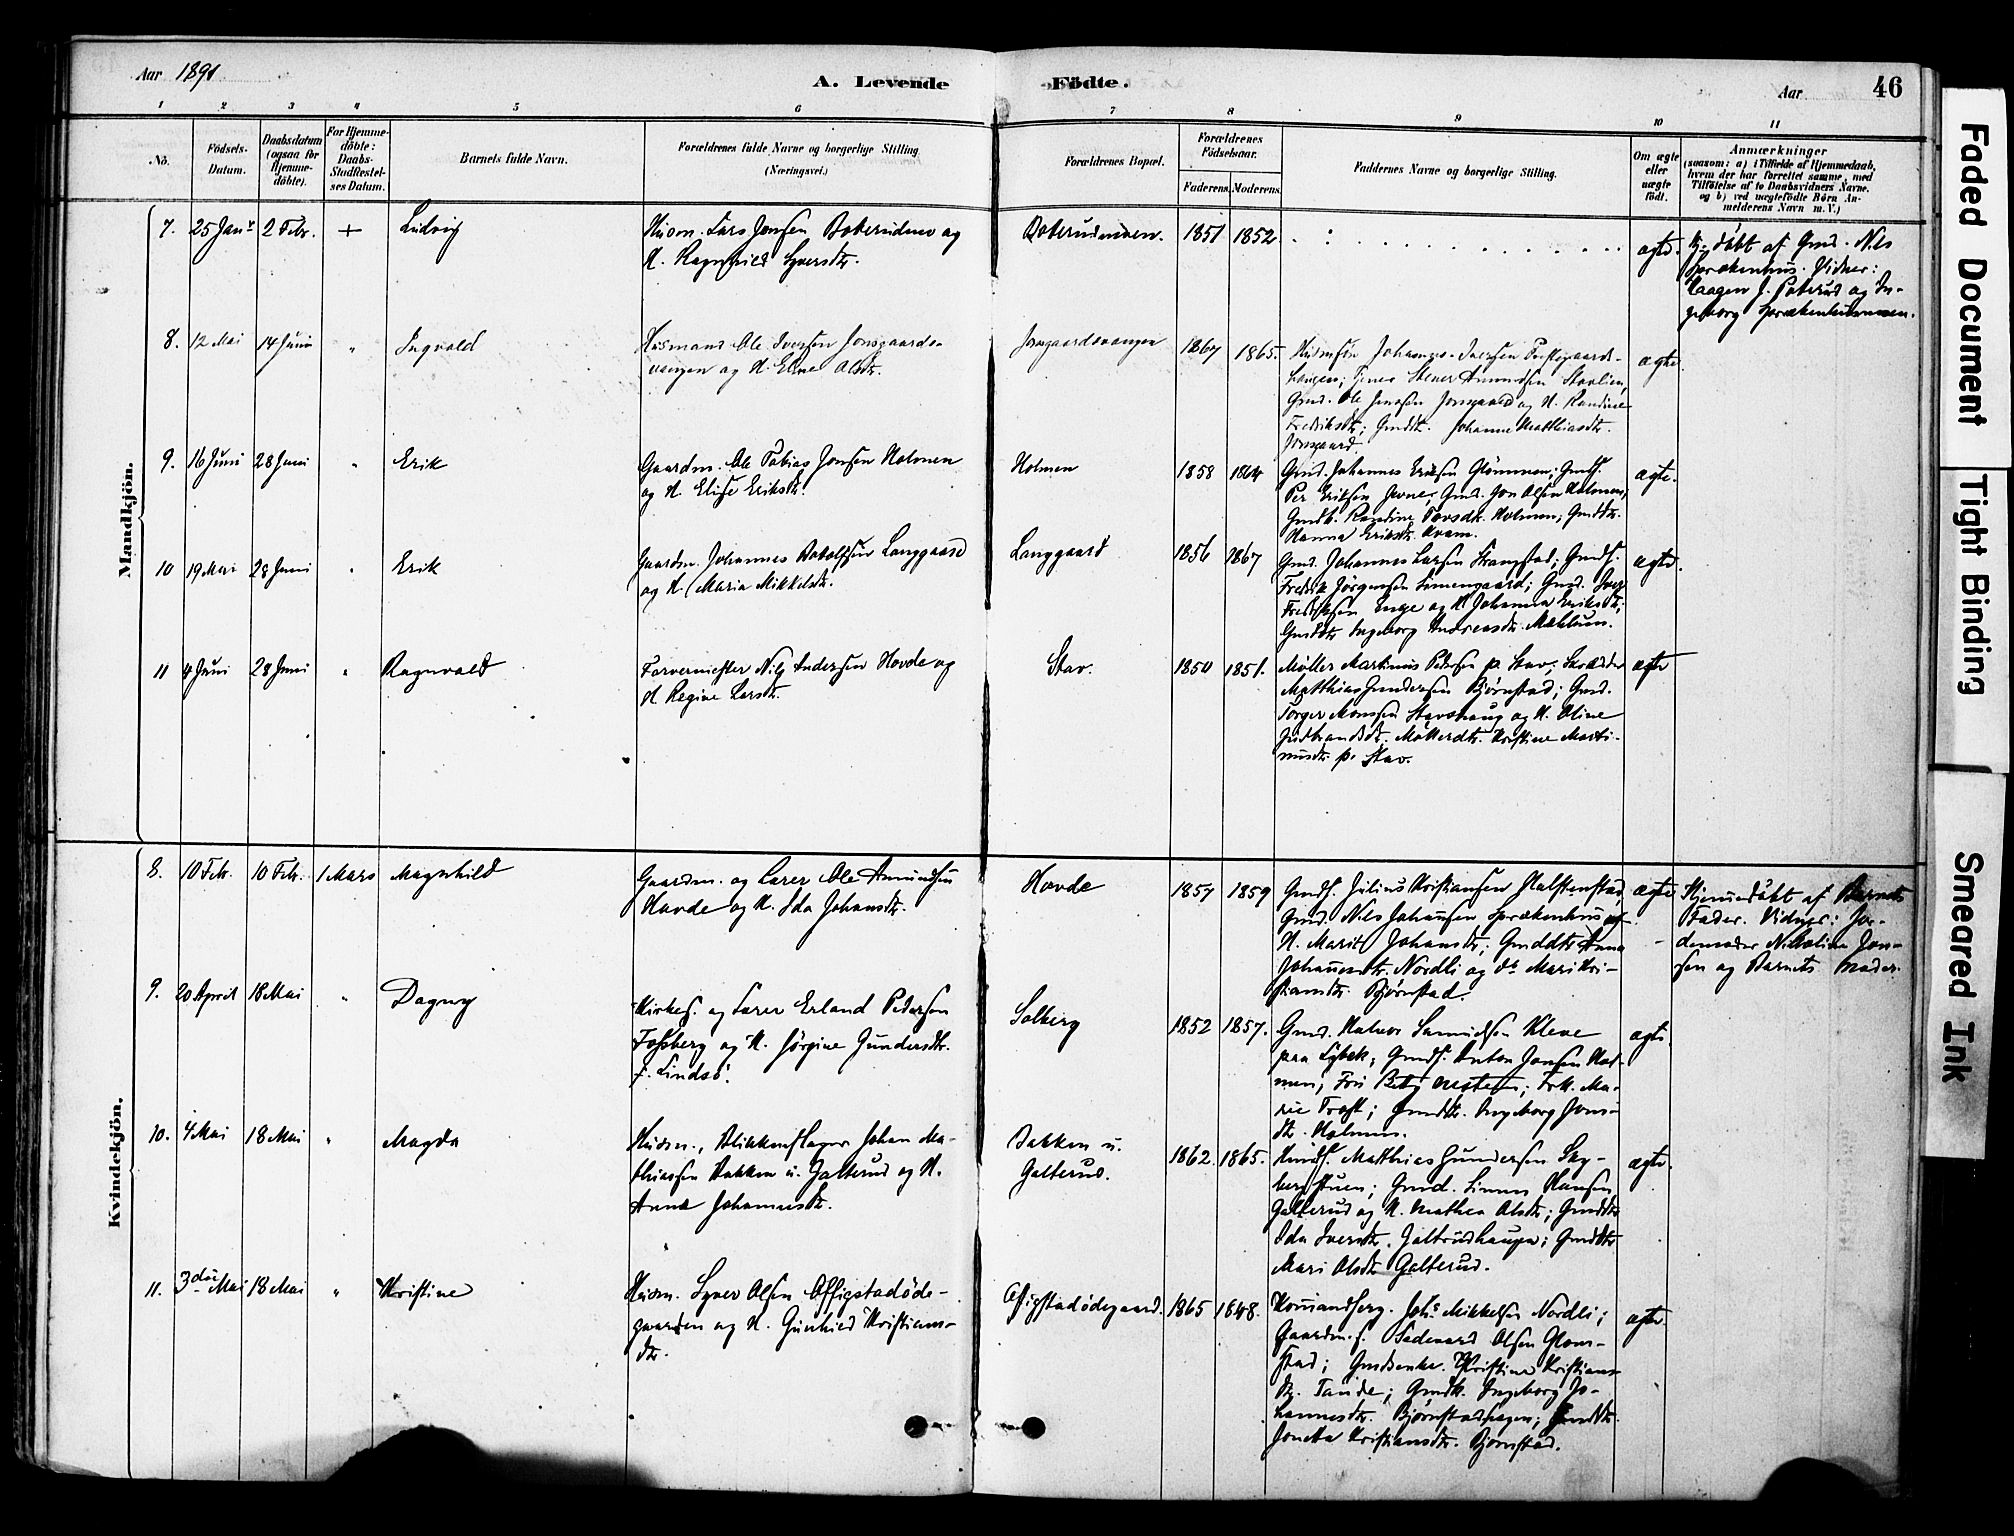 Aar 1891
A. Levende Födte.
Aar
46
1 2 3 4 5 6 7 8 9 10 11
No.
Födsels-
Datum.
Daabsdatum
(ogsaa for
Hjemme-
döbte).
For Hjemme-
döbte:
Daabs-
Stadfæstel-
ses Datum.
Barnets fulde Navn.
Forældrenes fulde Navne og borgerlige Stilling.
(Næringsvei.)
Forældrenes Bopæl.
Forældrenes
Födselsaar.
Faderens. Moderens.
Faddernes Navne og borgerlige Stilling.
Om ægte
eller
uægte
födt.
Anmærkninger
(saasom: a) i Tilfælde af Hjemmedaab,
hvem der har forrettet samme, med
Tilföielse af to Daabsvidners Navne,
og b) ved uægtefödte Börn An-
melderens Navn m. V.)
Mandkjön.
7. 25 Janr 2 Febr. + Ludvig
Husm. Lars Jensen og
K. Ragnhild Syversdtr.
1851 1852.
ægte.
Hj. döbt af Gmd. Nils
Sprækenhus. Vidner:
Haagen J. og In-
geborg
8. 12 Mai 14 Juni " Ingvald
Husmand Ole Iversen Jonsgaards-
vangen og K. Eline Olsdtr.
Jonsgaardsvangen
1867 1865.
Johannes Iversen
haugen; Stener Amundsen Stavlien,
Gmd. Ole Jensen Jonsgaard og K. Randine
Fredriksdtr; Gmddtr. Johanne Matthiasdtr.
Jonsgaard.
ægte
9. 16 Juni 28 Juni " Erik
Gaardm. Ole Tobias Jonsen Holmen
og K. Elise Eriksdtr.
Holmen
1858 1864
Gmd. Johannes Eriksen Glömmen; Gmds.
Per Eriksen Jevne; Gmd. Jon Olsen Holmen,
Gmdk. Randine Holmen; Gmddtr.
Hanna Eriksdtr. Kvam.
ægte.
10 19 Mai 28 Juni " Erik
Gaardm. Johannes Langgaard
og K. Maria Mikkelsdtr.
Langgaard
1856 1867
Gmd. Johannes Larsen Strangstad; Gmds.
Fredrik Jörgensen Simengaard; Gmd. Iver
Fredriksen Enge og K. Johanna Eriksdtr;
Gmddtr Ingeborg Andreasdtr. Mæhlum.
ægte.
11 4 Juni 28 Juni " Ragnvald
Farvermester Nils Andersen Hovde og
K Regine Larsdtr.
Stav.
1850 1851.
Møller Martinus Pedersen p. Stav; Skrædder
Matthias Gundersen Bjørnstad; Gmd.
Torger Monsen Stavshaug og K. Oline
Gudbrandsdtr. Møllerdtr. Kristine Marti-
nusdtr. p. Stav.
ægte
Kvindekjön.
8. 10 Febr. 10 Febr. 1 Mars Magnhild
Gaardm. og Lærer Ole Amundsen
Hovde og K. Ida Johansdtr.
Hovde
1857 1859
Gmds. Julius Kristiansen Halstenstad,
Gmd. Nils Johansen Sprækenhus og
K. Marit Johansdtr; Gmddtr Anna
Johannesdtr. Nordli og do Mari Kri-
stiansdtr. Bjørnstad.
ægte
Hjemmedöbt af Barnets
Fader. Vidner: Jor-
demoder Nikoline Jon-
sen og Barnets Moder.
9. 20 April 18 Mai " Dagny
Kirkes. og Lærer Erland Pedersen
Fossberg og K. Jörgine Gundersdtr.
f. Lindsö.
Solberg
1852 1857.
Gmd. Halvor Samuelsen Kleve
paa Lybek; Gmds. Anton Jonsen Hol-
men; Fru Betzy; Frk. Ma-
rie Trost; Gmddtr. Ingeborg Jons-
dtr. Holmen.
ægte.
10. 4 Mai 18 Mai " Magda
Husm., Blikkenslager Johan Ma-
thiassen Bakken u. Galterud og K.
Anna Johannesdtr.
Bakken u.
Galterud.
1862. 1865.
Matthias Gundersen Sky-
berg stuen; Gmd. Simen Hansen
Galterud og K. Mathea Olsdtr; Gmddtr
Ida Iversdtr. Galtrudhaugen; Gmddtr
Mari Olsdtr Galterud.
ægte.
11. 3die Mai 18 Mai " Kristine
Husm. Syver Olsen Offigstadöde-
gaarden og K. Gunhild Kristians-
dtr.
Offigstadödegaard.
1865 1848.
Johs Mikkelsen Nordli;
Gaardm.s. Olsen Glom-
stad; Gmdsenke. Kristine Kristians-
dtr. Tande; Gmdk. Ingeborg Jo-
hannesdtr. Bjørnstadhagen; Gmddtr.
Jonetta Kristiansdtr. Bjørnstad.
ægte
Faded Document
Tight Binding
Smeared Ink